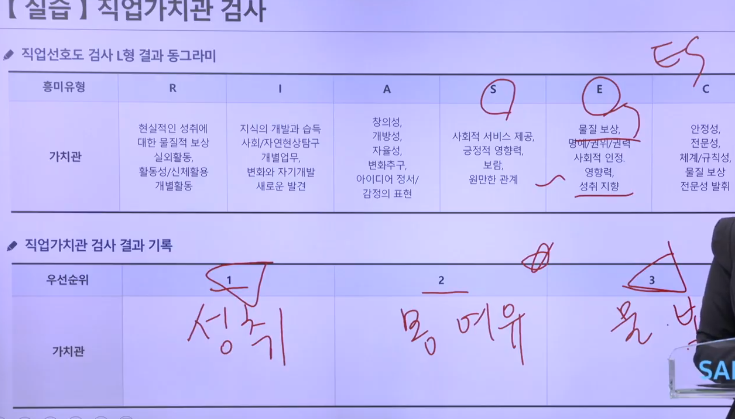 【 실습 】 직업가치관 검사
직업선호도 검사 L형 결과 동그라미
ES
흥미유형 R I A S E C
가치관
현실적인 성취에
대한 물질적 보상
실외활동,
활동성/신체활용
개별활동
지식의 개발과 습득
사회/자연현상탐구
개별업무,
변화와 자기개발
새로운 발견
창의성,
개방성,
자율성,
변화추구,
아이디어 정서/
감정의 표현
사회적 서비스 제공,
긍정적 영향력,
보람,
원만한 관계
물질 보상,
명예/권위/권력
사회적 인정,
영향력,
성취 지향
안정성,
전문성,
체계/규칙성,
물질 보상
전문성 발휘
직업가치관 검사 결과 기록
우선순위 1 2 3
가치관
성취
몸 여유
물 보
SA